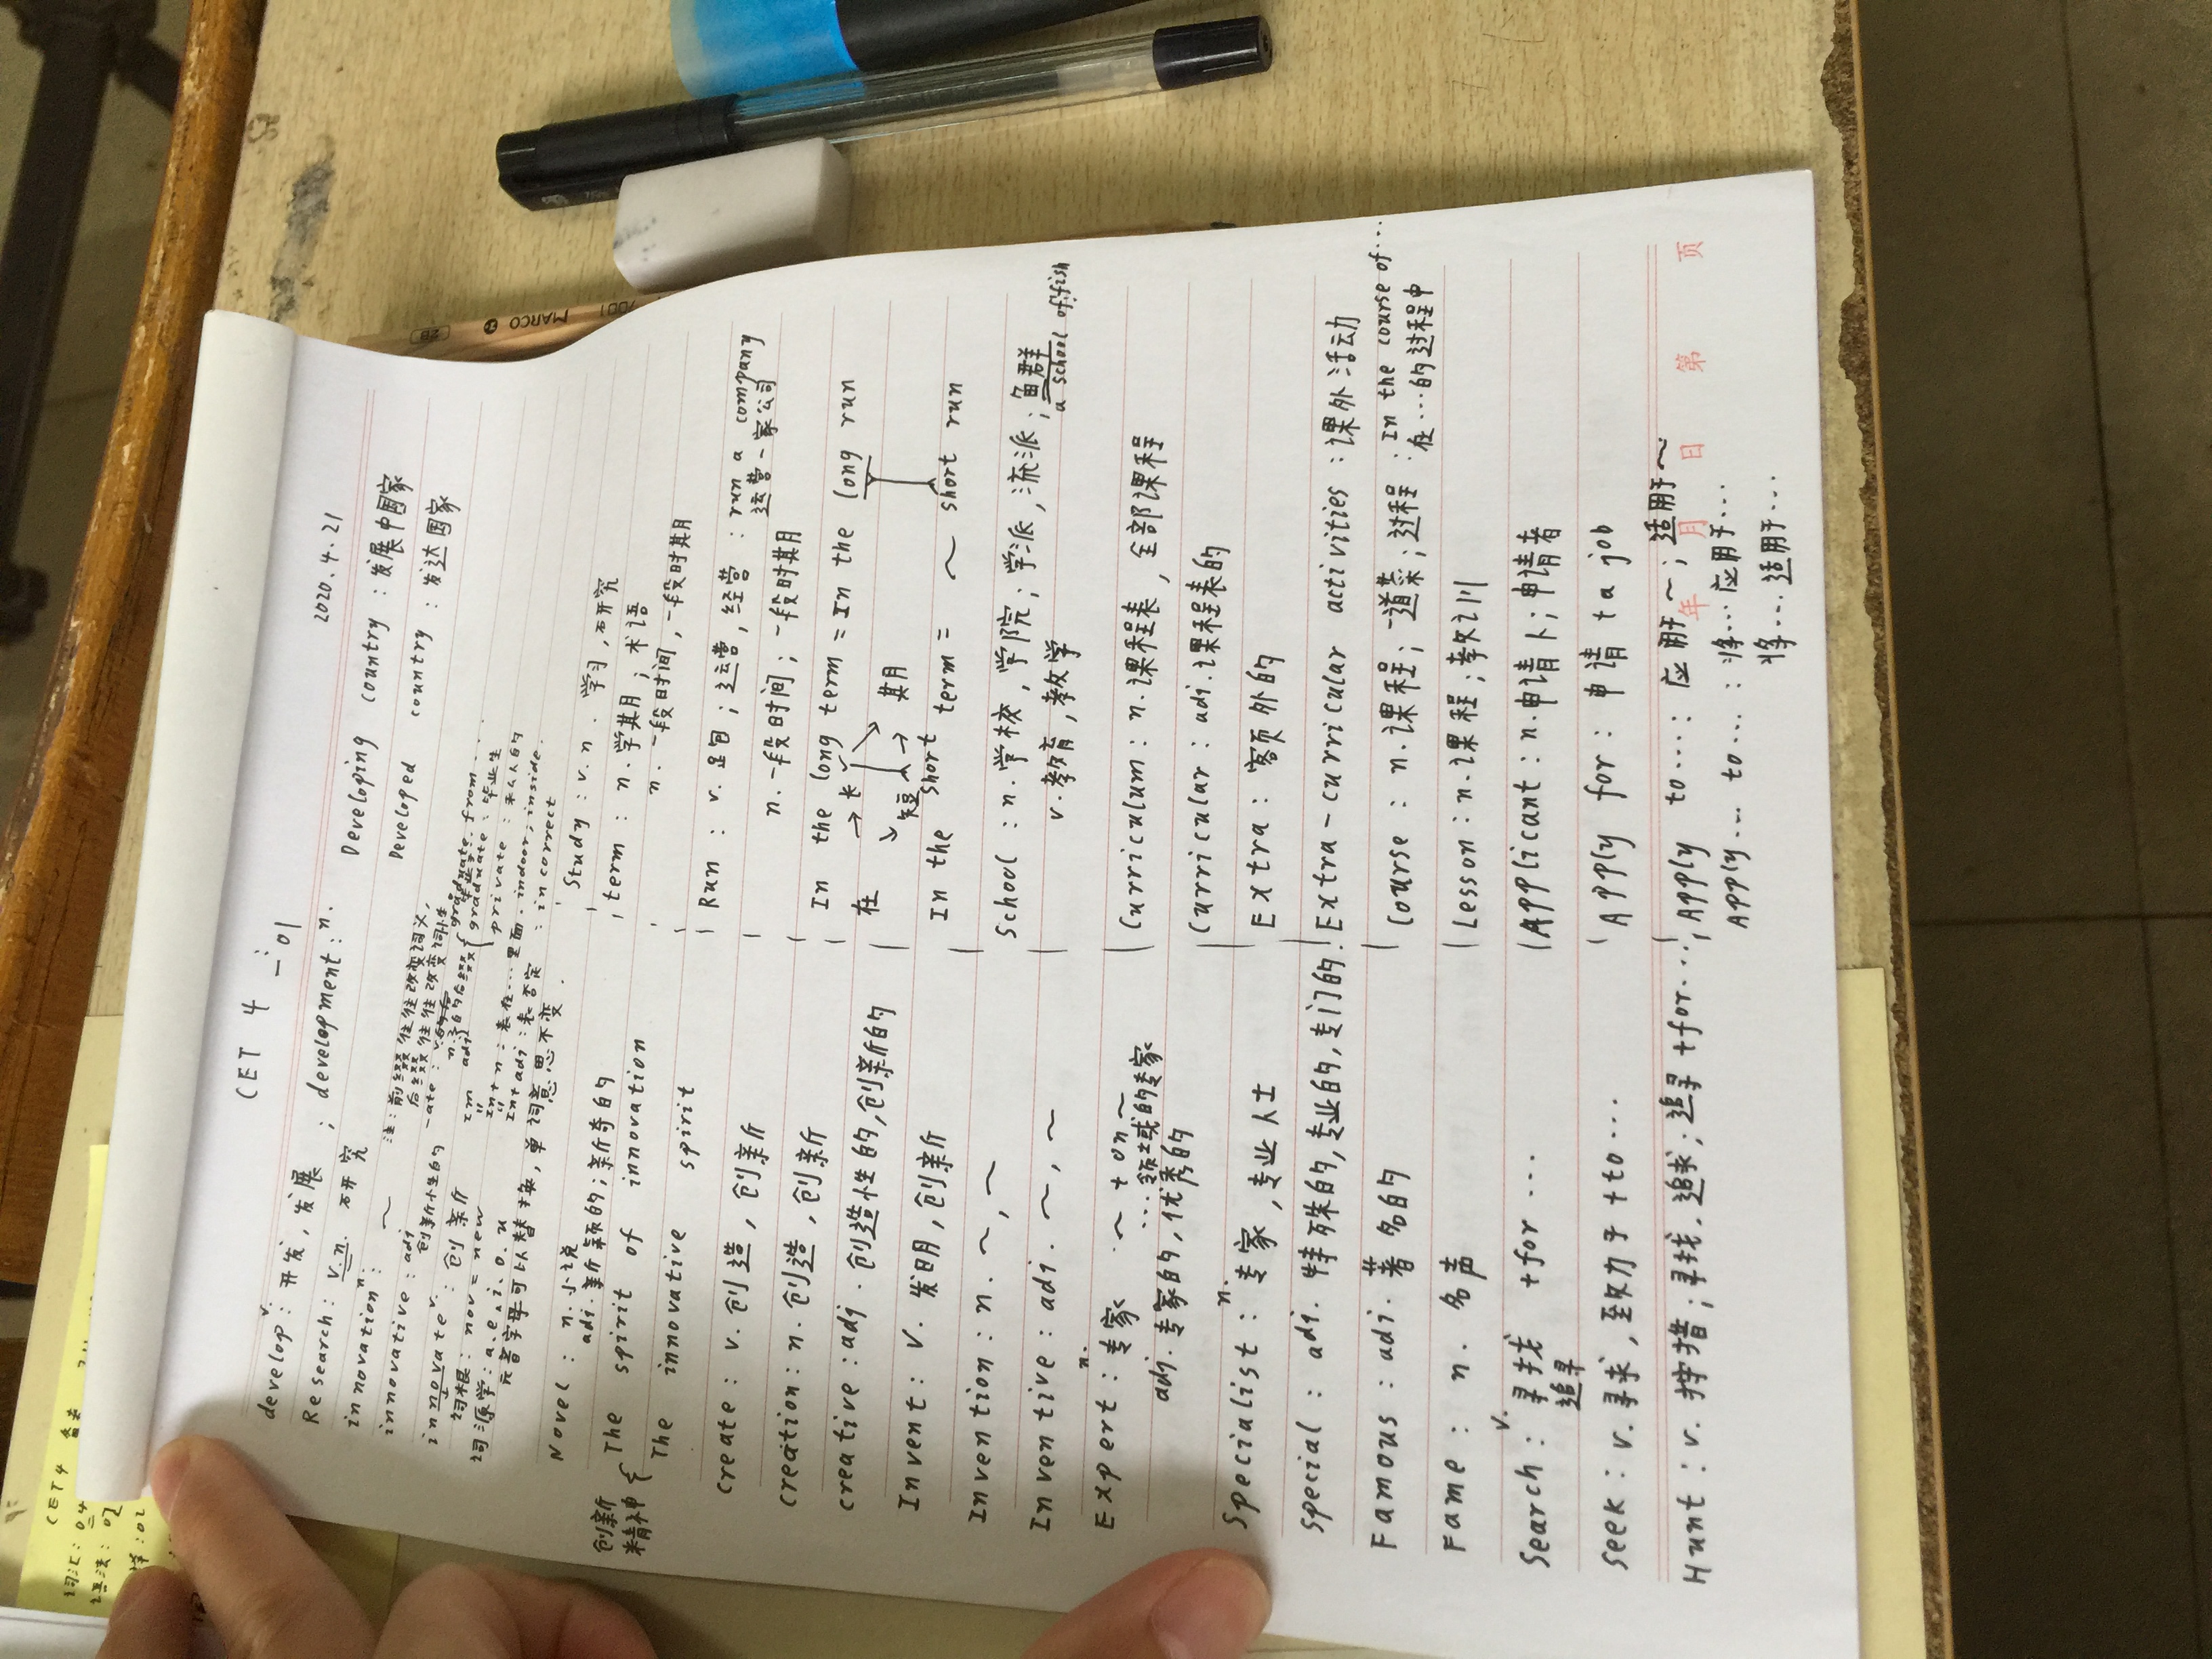 CET 4 一:01
2020.4.21
develop v.: 开发,发展 ; development: n.
Research: v.n. 研究
innovation n.: ~
innovative: adj 创新性的
innovate v.: 创新
词根: nov = new
词源学: a.e.i.o.u
元音字母可以替换,单词意思不变.
注: 前缀往往改变词义,
后缀往往改变词性
graduate from
graduate: 毕业生
private: 私人的
In+n: 表在...里面. indoor, inside.
In+adj: 表否定 : incorrect
Novel: n. 小说
adj. 新颖的;新奇的
创新精神 { The spirit of innovation
The innovative spirit
create: v. 创造,创新
creation: n. 创造,创新
creative: adj. 创造性的,创新的
Invent: v. 发明,创新
Invention: n. ~,~
Inventive: adj. ~,~
Expert: n. 专家 ~ + on ~
...领域的专家
adj. 专家的,优秀的
Specialist: n. 专家,专业人士
special: adj. 特殊的,专业的,专门的.
Famous: adj. 著名的
Fame: n. 名声
Search: v. 寻找 +for ...
追寻
seek: v. 寻求,致力于 +to...
Hunt: v. 狩猎;寻找.追求;追寻 +for...
Developing country: 发展中国家
Developed country: 发达国家
Study: v.n. 学习,研究
term: n. 学期;术语
n. 一段时间,一段时期
Run: v. 跑;运营,经营 : run a company
运营一家公司
n. 一段时间;一段时期
In the long term = In the long run
在 → 长 期
短
In the short term = ~ short run
School: n. 学校,学院;学派,流派;鱼群
a school of fish
v. 教育,教学
Curriculum: n. 课程表,全部课程
Curricular: adj. 课程表的
Extra: 额外的
Extra-curricular activities: 课外活动
Course: n. 课程;一道菜;过程 : In the course of...
在...的过程中
Lesson: n. 课程;教训
Applicant: n. 申请人;申请者
Apply for: 申请 to a job
Apply to...: 应用于~;适用于~
Apply... to...: 将...应用于...
将...适用于...
年 月 日 第 页
MARCO
CET4